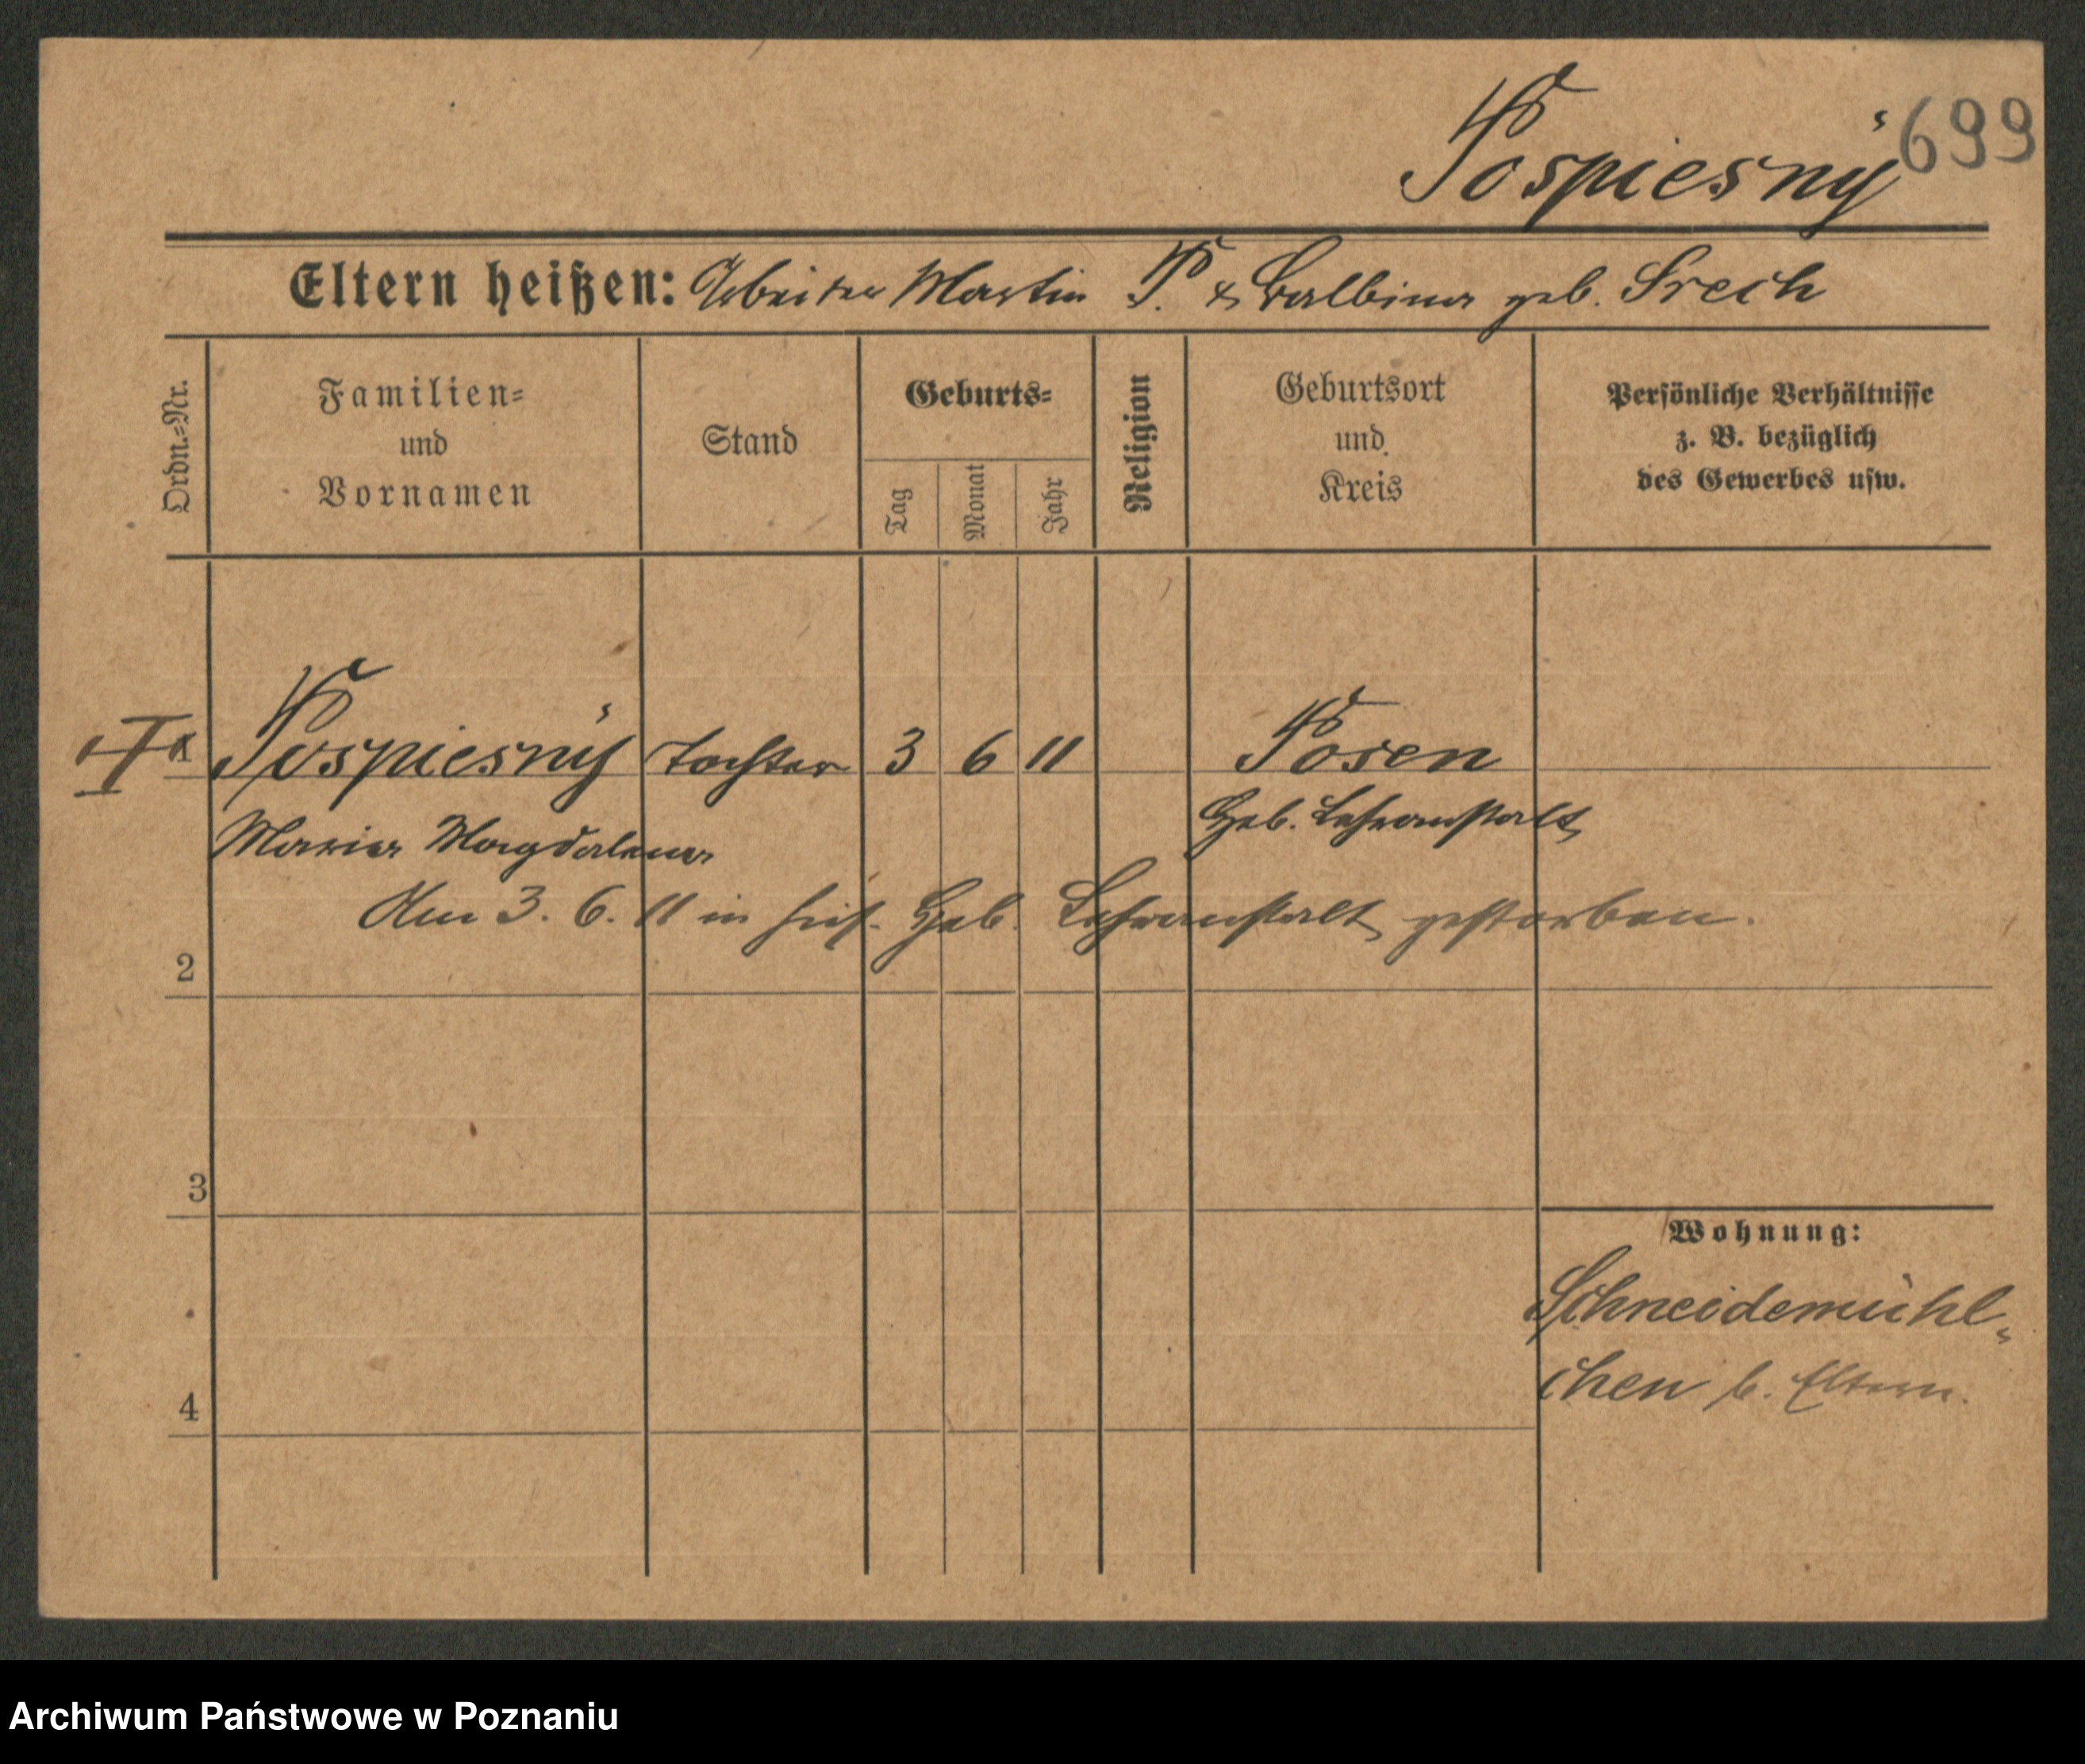 Pospiesny
699
Eltern heißen: Arbeiter Martin P. & Balbina geb. Srech
Ordn.=Nr.
Familien=
und
Vornamen
Stand
Geburts=
Tag
Monat
Jahr
Religion
Geburtsort
und
Kreis
Persönliche Verhältnisse
z. B. bezüglich
des Gewerbes usw.
1 Pospiesny Tochter 3 6 11 Posen
Geb. Lehranstalt
Maria Magdalena
Am 3. 6. 11 in hies. Heb. Lehranstalt gestorben.
2
3
Wohnung:
Schneidemühl=
chen b. Eltern.
4
Archiwum Państwowe w Poznaniu